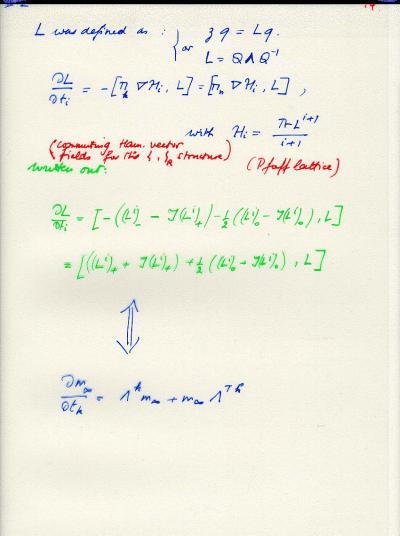 L was defined as : { z q = L q.
or L = Q Λ Q⁻¹
∂L/∂tᵢ = -[π_k ∇Hᵢ, L] = [π_n ∇Hᵢ, L] ,
with Hᵢ = Tr Lⁱ⁺¹/i+1
(commuting Ham. vector
fields for the { , }_R structure)
(Pfaff lattice)
written out:
∂L/∂tᵢ = [-((Lⁱ)₋ - J(Lⁱ)₊) - ½((Lⁱ)₀ - J(Lⁱ)₀), L]
= [((Lⁱ)₊ + J(Lⁱ)₊) + ½((Lⁱ)₀ + J(Lⁱ)₀), L]
⇕
∂m_∞/∂t_k = Λᵏ m_∞ + m_∞ Λᵀᵏ